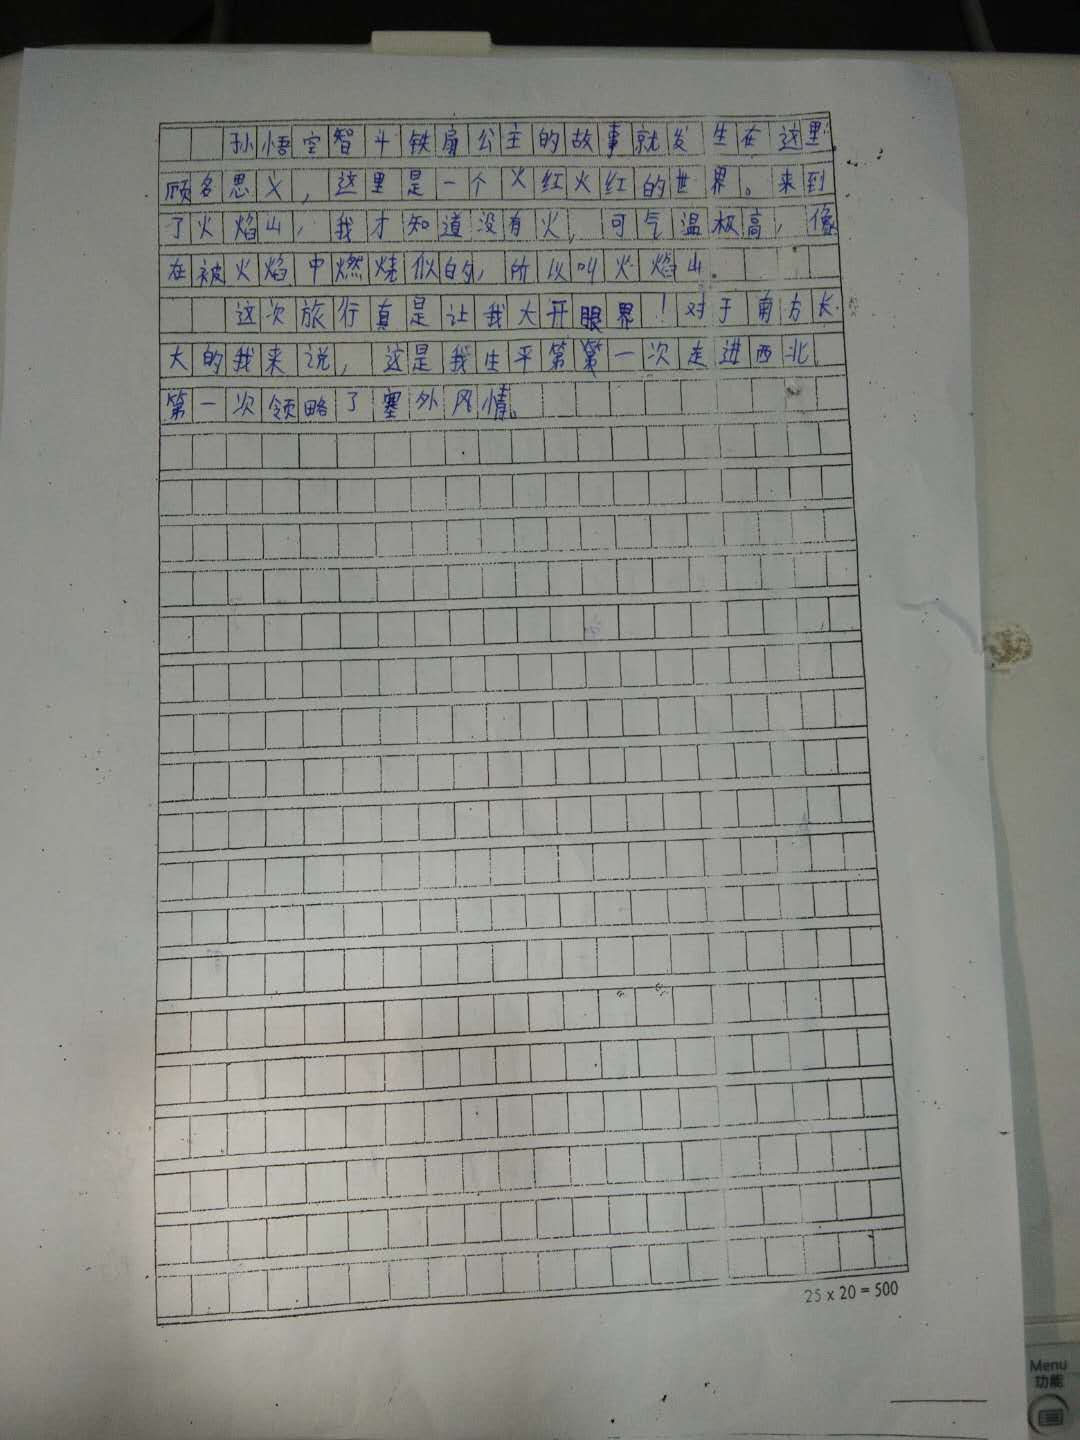 孙悟空智斗铁扇公主的故事就发生在这里
顾名思义，这里是一个火红火红的世界。来到
了火焰山，我才知道没有火，可气温极高，像
在被火焰中燃烧似的，所以叫火焰山。
这次旅行真是让我大开眼界！对于南方长
大的我来说，这是我生平第第一次走进西北，
第一次领略了塞外风情。
25 x 20 = 500
Menu
功能